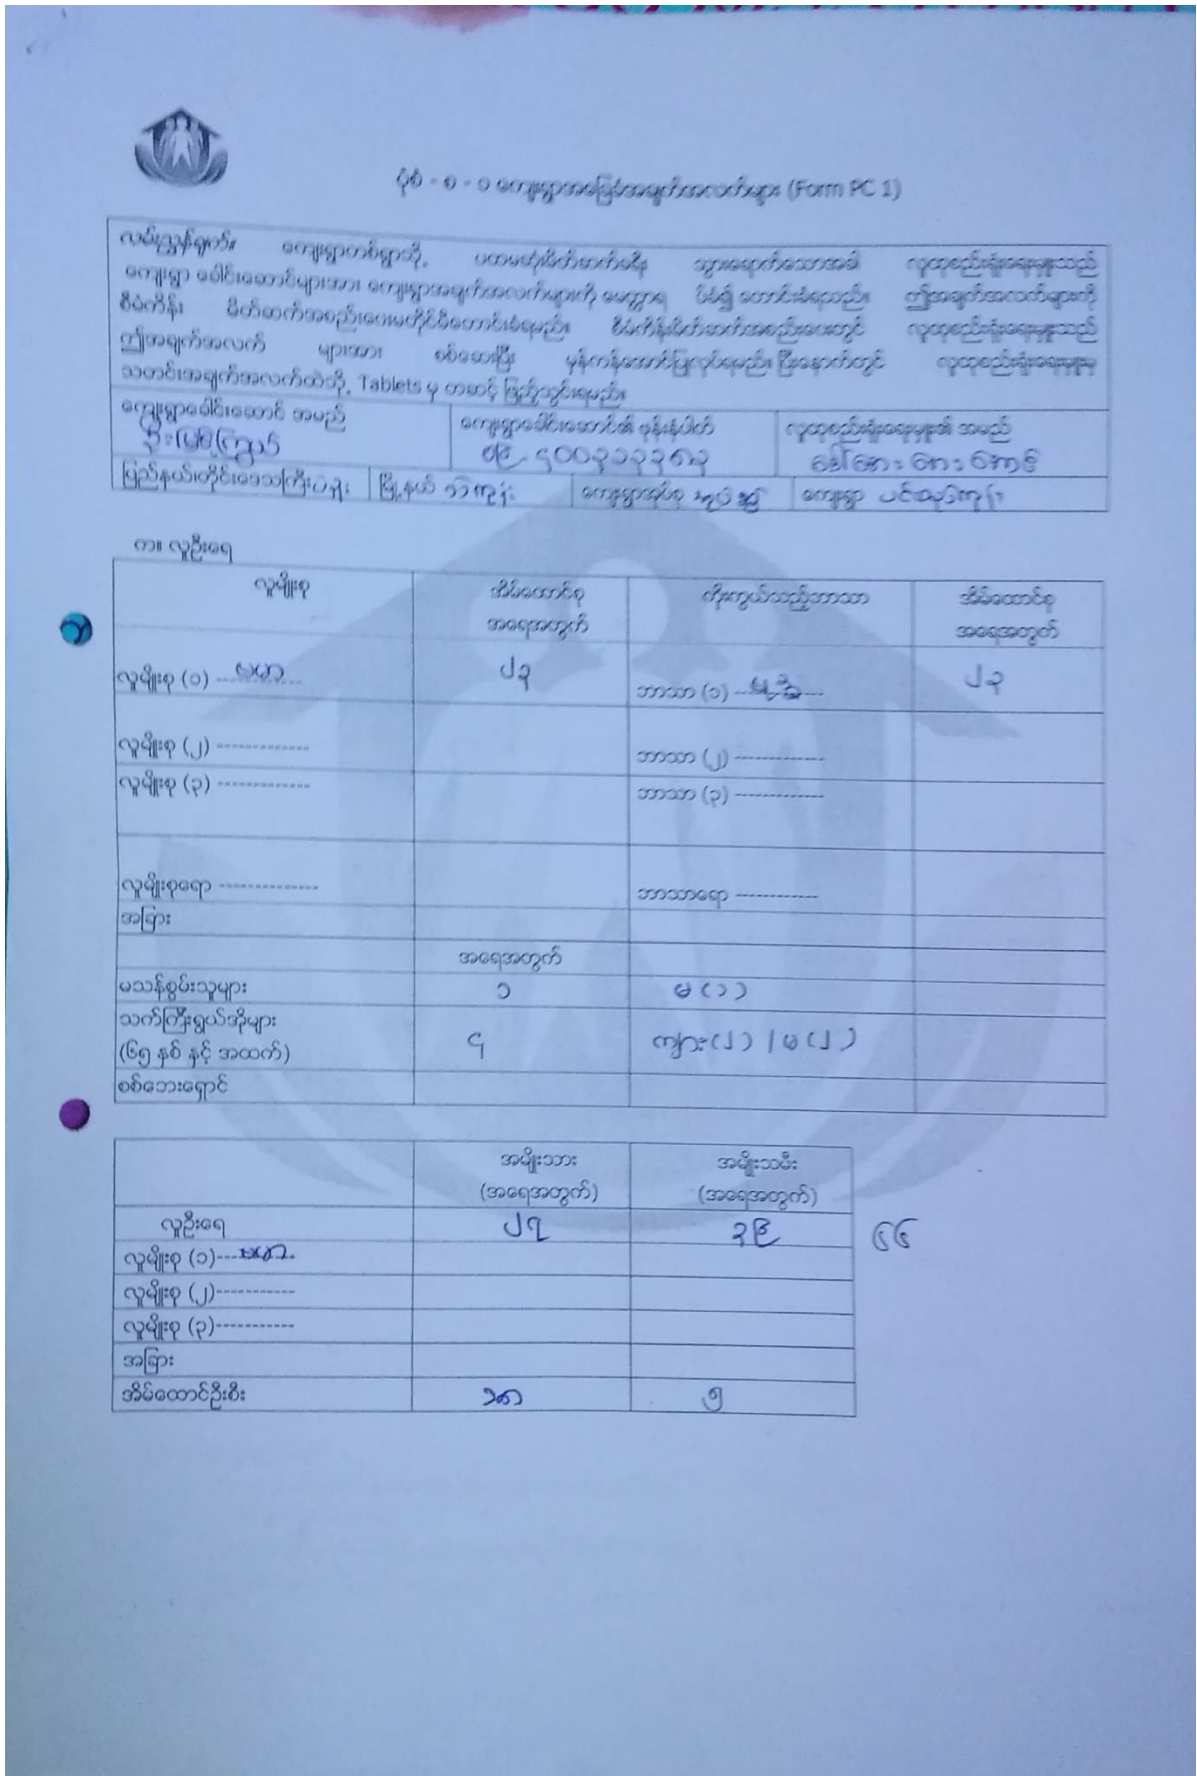 ပုံစံ - ၈ - ၁ ကျေးရွာအခြေခံအချက်အလက်များ (Form PC 1)
လမ်းညွှန်ချက်။ ကျေးရွာတစ်ရွာသို့ ပထမဆုံးမိတ်ဆက်ခရီး သွားရောက်သောအခါ လူထုစည်းရုံးရေးမှူးသည်
ကျေးရွာ ခေါင်းဆောင်များအား ကျေးရွာအချက်အလက်များကို မေတ္တာရပ်ခံ၍ တောင်းခံရသည်။ ဤအချက်အလက်များကို
စီမံကိန်း မိတ်ဆက်အစည်းဝေးမတိုင်မီတောင်းခံရမည်။ စီမံကိန်းမိတ်ဆက်အစည်းဝေးတွင် လူထုစည်းရုံးရေးမှူးသည်
ဤအချက်အလက် များအား စစ်ဆေးပြီး မှန်ကန်အောင်ပြုလုပ်ရမည်။ ပြီးနောက်တွင် လူထုစည်းရုံးရေးမှူးမှ
သတင်းအချက်အလက်ထဲသို့ Tablets မှ တဆင့် ဖြည့်သွင်းရမည်။
ကျေးရွာခေါင်းဆောင် အမည် ကျေးရွာခေါင်းဆောင်၏ ဖုန်းနံပါတ် လူထုစည်းရုံးရေးမှူး၏ အမည်
ဦး ၀၉-၄၀၀၃၁၃၃၈၃ ဒေါ်
ပြည်နယ်/တိုင်းဒေသကြီး မြို့နယ် ကျေးရွာအုပ်စု ကျေးရွာ
က။ လူဦးရေ
လူမျိုးစု အိမ်ထောင်စု ကိုးကွယ်သည့်ဘာသာ အိမ်ထောင်စု
အရေအတွက် အရေအတွက်
လူမျိုးစု (၁) ---ဗမာ--- ၂၃ ဘာသာ (၁) ---ဗုဒ္ဓ--- ၂၃
လူမျိုးစု (၂) ------------- ဘာသာ (၂) -------------
လူမျိုးစု (၃) ------------- ဘာသာ (၃) -------------
လူမျိုးစုရော -------------- ဘာသာရော ------------
အခြား
အရေအတွက်
မသန်စွမ်းသူများ ၁ မ (၁)
သက်ကြီးရွယ်အိုများ
(၆၅ နှစ် နှင့် အထက်) ၄ ကျား (၂) / မ (၂)
စစ်ဘေးရှောင်
အမျိုးသား အမျိုးသမီး
(အရေအတွက်) (အရေအတွက်)
လူဦးရေ ၂၇ ၃၉ ၆၆
လူမျိုးစု (၁)---ဗမာ
လူမျိုးစု (၂)-----------
လူမျိုးစု (၃)-----------
အခြား
အိမ်ထောင်ဦးစီး ၁၈ ၅